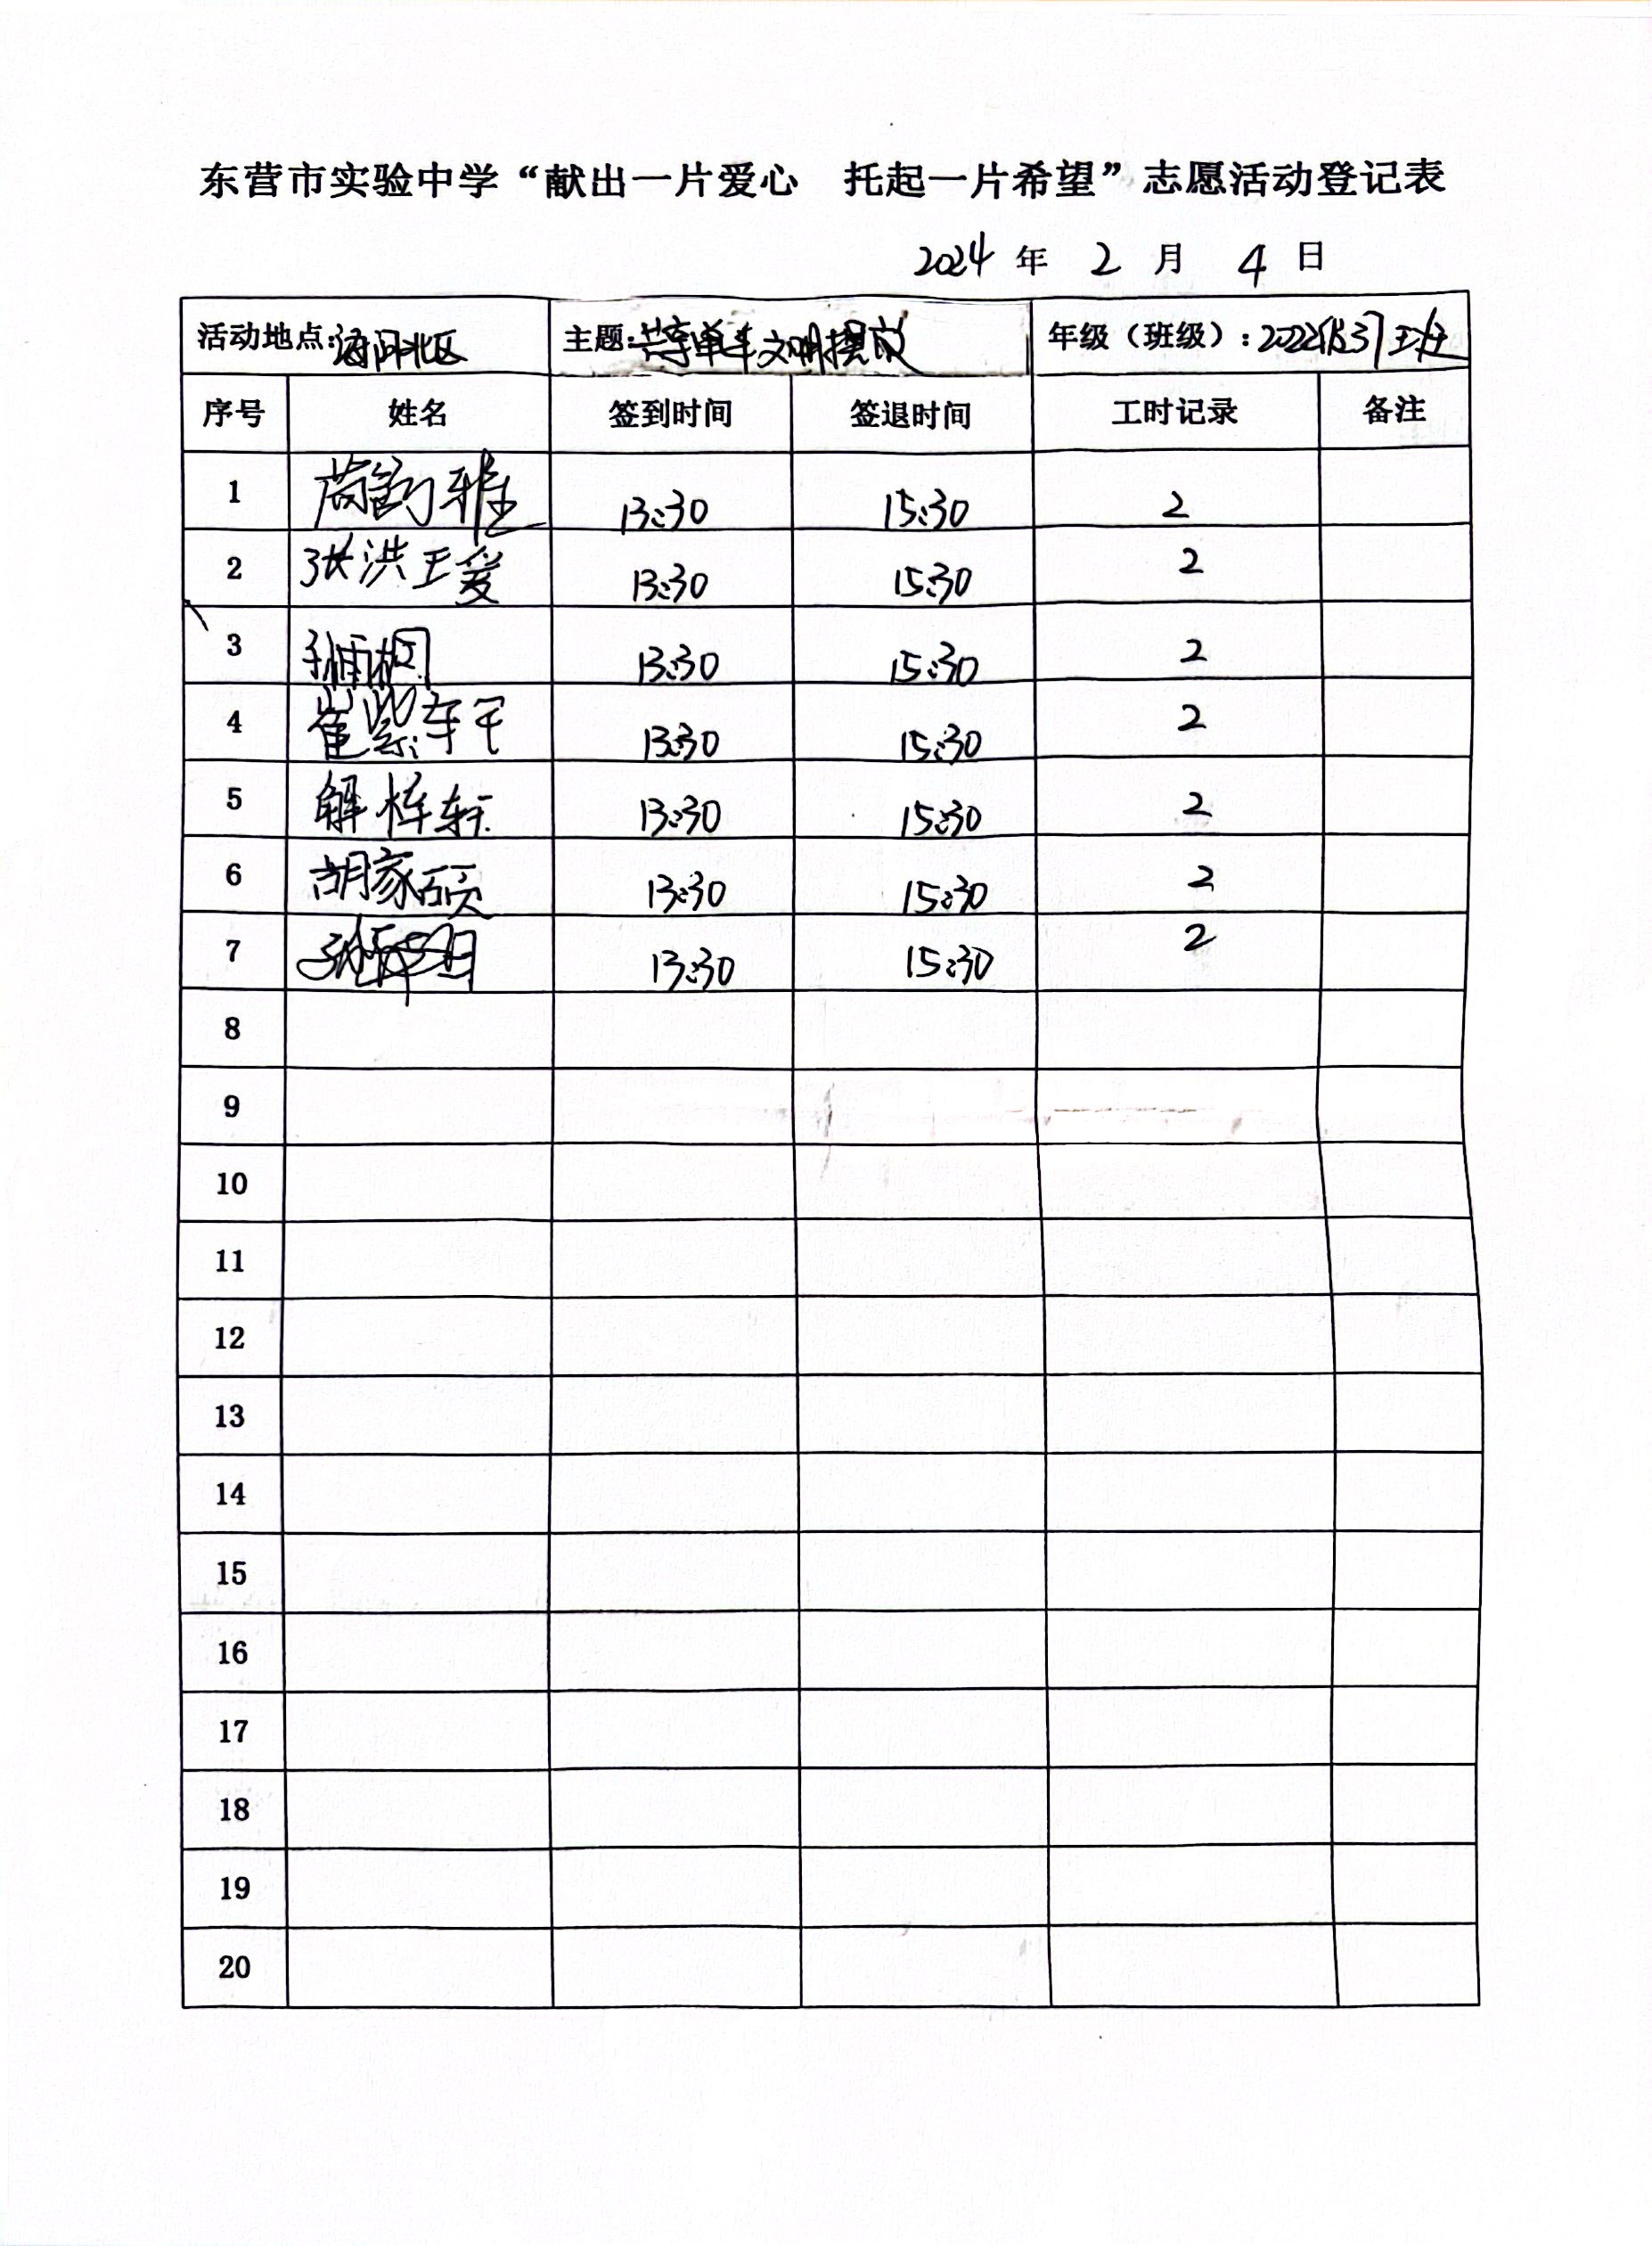 东营市实验中学“献出一片爱心　托起一片希望”志愿活动登记表
2024 年 2 月 4 日
活动地点: 海河北区 主题: 共享单车文明摆放 年级（班级）: 2022级37班
序号 姓名 签到时间 签退时间 工时记录 备注
1 13:30 15:30 2
2 张洪瑗 13:30 15:30 2
3 孙雨桐 13:30 15:30 2
4 崔紫 13:30 15:30 2
5 解梓轩 13:30 15:30 2
6 胡家硕 13:30 15:30 2
7 13:30 15:30 2
8
9
10
11
12
13
14
15
16
17
18
19
20